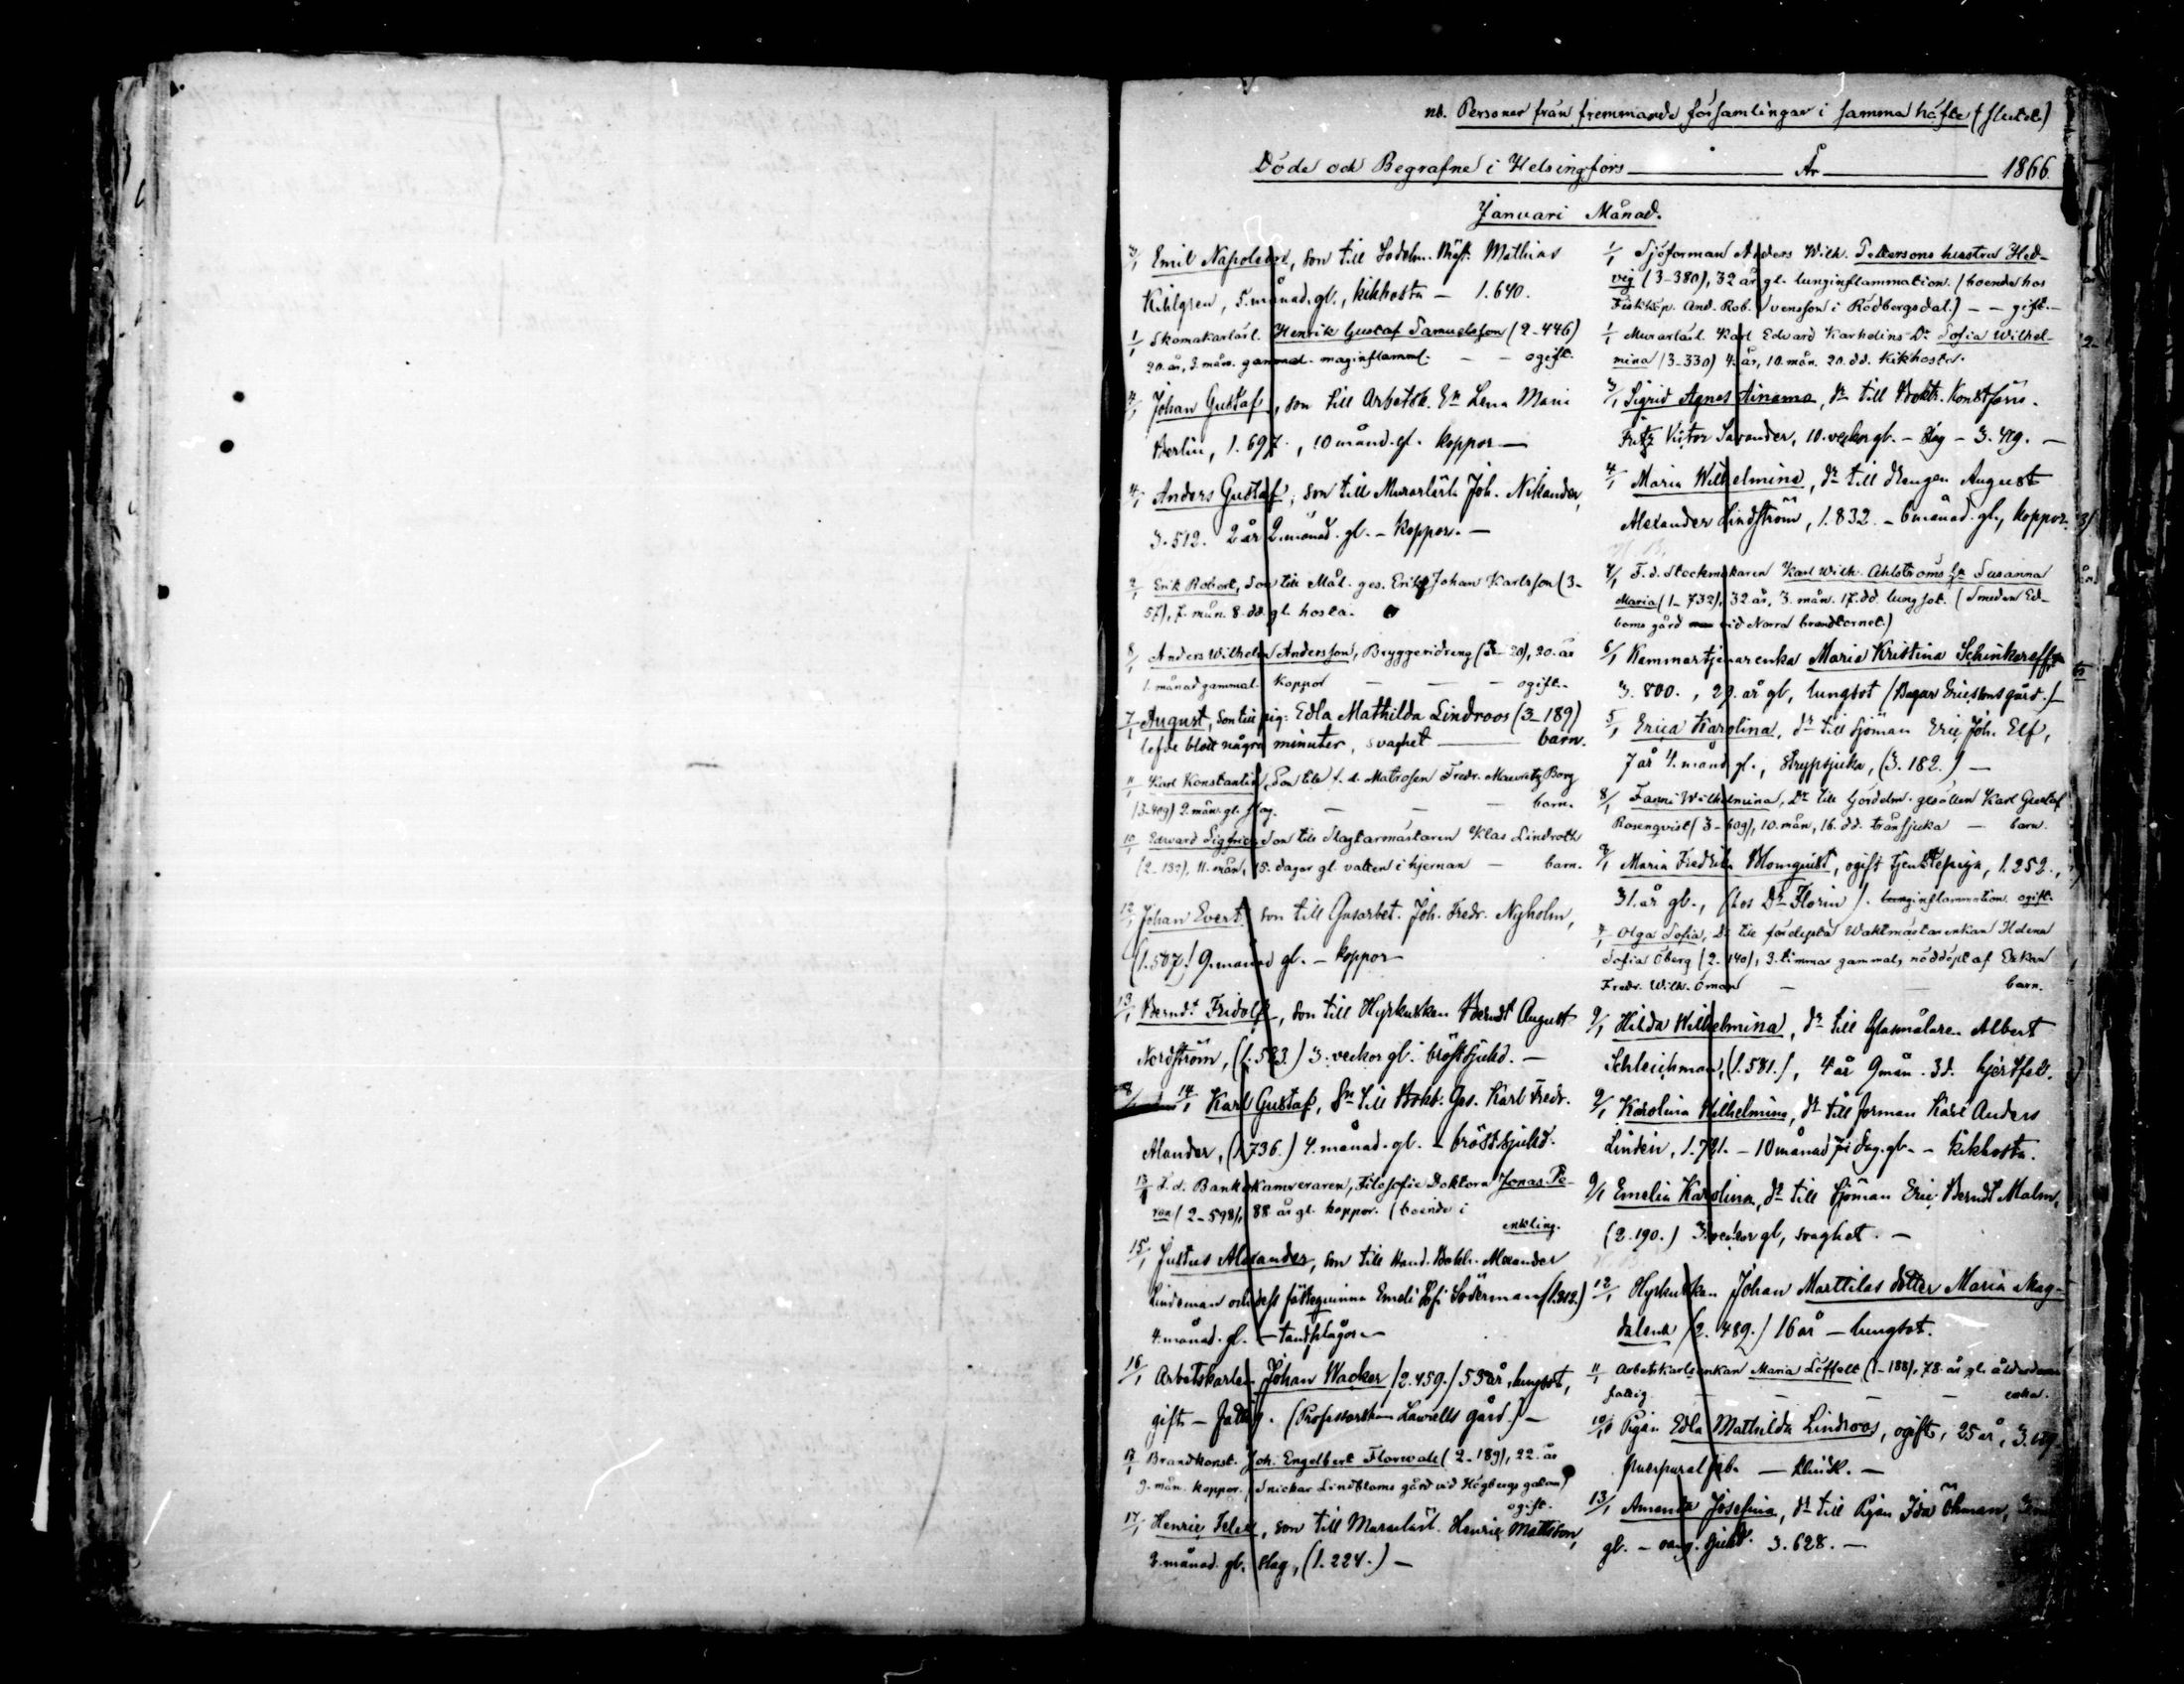 nb. Personer från fremmande församlingar i samma häfte (slutet)
Döde och Begrafne i Helsingfors År 1866.
Januari Månad.
3/1 Emil Napoleon, son till Mathias
Kihlgren, 5. månad. gl., kikhosta — 1.640.
1/1 Skomakarlärl. Henrik Gustaf Samuelsson (2-446)
20. år, 3. mån. gammal. maginflamml. — — ogift.
4/1 Johan Gustaf, son till Arbetsk. Lena Maria
Berlin, 1.697., 10 månd. gl. koppor —
4/1 Anders Gustaf, son till Murarlärl. Joh. Nikander,
3.512. 2 år 2. månad. gl. – koppor. —
2/1 Erik Robert, son till Mål. ges. Erik Johan Karlsson (3-
57), 7. mån. 8. dd. gl. hosta.
8/1 Anders Wilhelm Andersson, Bryggeridreng (3-20), 20. år
1. månad gammal. koppor — — — ogift.
7/1 August, son till pig: Edla Mathilda Lindroos (3-189)
lefde blott några minuter, svaghet — barn.
11/1 Karl Konstantin, Son till f. d. Matrosen Fredr. Mauritz Borg
(3-409) 2. mån. gl. slag. — — — barn.
10/1 Edward Sigfrid, Son till Slagtarmästaren Klas Lindroth
(2-132), 11. mån, 15. dagar gl. vatten i hjernan — barn.
12/1 Johan Evert, son till Gasarbet. Joh. Fredr. Nyholm,
(1.507.) 9. månad gl. — koppor
13/1 Berndt Fridolf, son till Hyrkusken Berndt August
Nordström, (1.523.) 3. veckor gl. bröstsjukd. —
14/1 Karl Gustaf, Sn till Bokb. Ges. Karl Fredr.
Alander, (1.736.) 4. månad. gl. – bröstsjukd.
13/1 F. d. Bankokamreraren, Filosofie Doktorn Jonas Pe-
ron (2-598), 88. år gl. koppor. (boende i
enkling.
15/1 Justus Alexander, son till Hand. Bokh. Alexander
Lindeman och dess fästeqvinna Emeli Sofi Söderman (1.312.)
4. månad. gl. — tandplågor —
16/1 Arbetskarlen Johan Wacker (2.459.) 55 år, lungsot,
gift — fattig. (Professorskan Laurells gård.) —
17/1 Brandkonst. Joh. Engelbert Florwall (2-189), 22. år
9. mån. koppor. (Snickar Lindbloms gård vid Högbergs gatan)
ogift.
17/1 Henric Felix, son till Murarlärl. Henric Mattsson,
3. månad. gl. slag, (1.224.) —
1/1 Sjöforman Anders Wilh. Pettersons hustru Hed-
vig (3-380), 32 år gl. lunginflammation. (boende hos
Fiskköp. And. Rob. Svensson i Rödbergsdal.) — — gift. —
1/1 Murarlärl. Karl Edvard Karhelins Dr Sofia Wilhel-
mina (3-330) 4. år, 10. mån. 20. dd. Kikhosta.
3/1 Sigrid Agnes Ainama, dr till Boktr. Konstförv.
Fritz Victor Savander, 10. veckor gl. – slag – 3.479. —
4/1 Maria Wilhelmina, dr till drengen August
Alexander Lindström, 1.832. – 6 månad. gl., koppor.
7/1 F. d. Stockmakaren Karl Wilh. Ahlströms Susanna
Maria (1-732), 32 år, 3. mån. 17. dd. lungsot. (Smeden Ed-
boms gård vid Norra brandtornet.)
6/1 Kammartjenarenka Maria Kristina Schinkareff
3.800., 29. år gl, lungsot (Bagar Ericssons gård.) —
5/1 Erica Karolina, dr till sjöman Eric Joh. Elf,
7 år 4. månd. gl., strypsjuka, (3.182.) —
8/1 Fanni Wilhelmina, Dr till Gördelm. gesällen Karl Gustaf
Rosenqvist (3-609), 10. mån, 16. dd. trånsjuka — barn.
8/1 Maria Fredrika Blomquist, ogift tjenstepiga, 1.252.,
31. år gl., (hos Dr Florin). lunginflammation. ogift.
7/1 Olga Sofia, Dr till Waktmästarenkan Helena
Sofia Öberg (2-140), 3. timmar gammal, nöddöpt af Enkan
Fredr. Wilh. Öman — — barn.
9/1 Hilda Wilhelmina, dr till Glasmålare Albert
Schleichman, (1.581.), 4 år 9 mån. 3 d. hjertfel.
9/1 Karolina Wilhelmina, dr till forman Karl Anders
Lindén, 1.721. – 10 månad 7 dag. gl. – kikhosta.
9/1 Emelia Karolina, dr till Sjöman Eric Berndt Malm,
(2.190.) 3. veckor gl, svaghet. —
12/1 Hyrkusken Johan Marttilas dotter Maria Mag-
dalena (2.489.) 16 år — lungsot.
11/1 Arbetskarlsenkan Maria Löffelt (1-188), 78. år gl.
fattig — — — enka.
10/1 Pigan Edla Mathilda Lindroos, ogift, 25 år,
puerpural feb. — —
13/1 Amanda Josefina, dr till Pigan Ida Öhman,
gl. – sjukd. 3.628. —